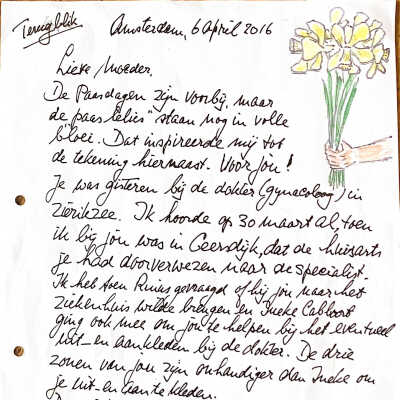 Terugblik
Amsterdam, 6 April 2016
Lieve Moeder,
De Paasdagen zijn voorbij, maar
de "paas lelies" staan nog in volle
bloei. Dat inspireerde mij tot
de tekening hiernaast. Voor jou!
Je was gisteren bij de dokter (gynacoloog) in
Zierikzee. Ik hoorde op 30 maart al, toen
ik bij jou was in Geersdijk, dat de huisarts
je had doorverwezen naar de specialist.
Ik heb toen Rinus gevraagd of hij jou naar het
ziekenhuis wilde brengen en Ineke
ging ook mee om jou te helpen bij het eventueel
uit- en aankleden bij de dokter. De drie
zonen van jou zijn onhandiger dan Ineke om
je uit- en aan te kleden.